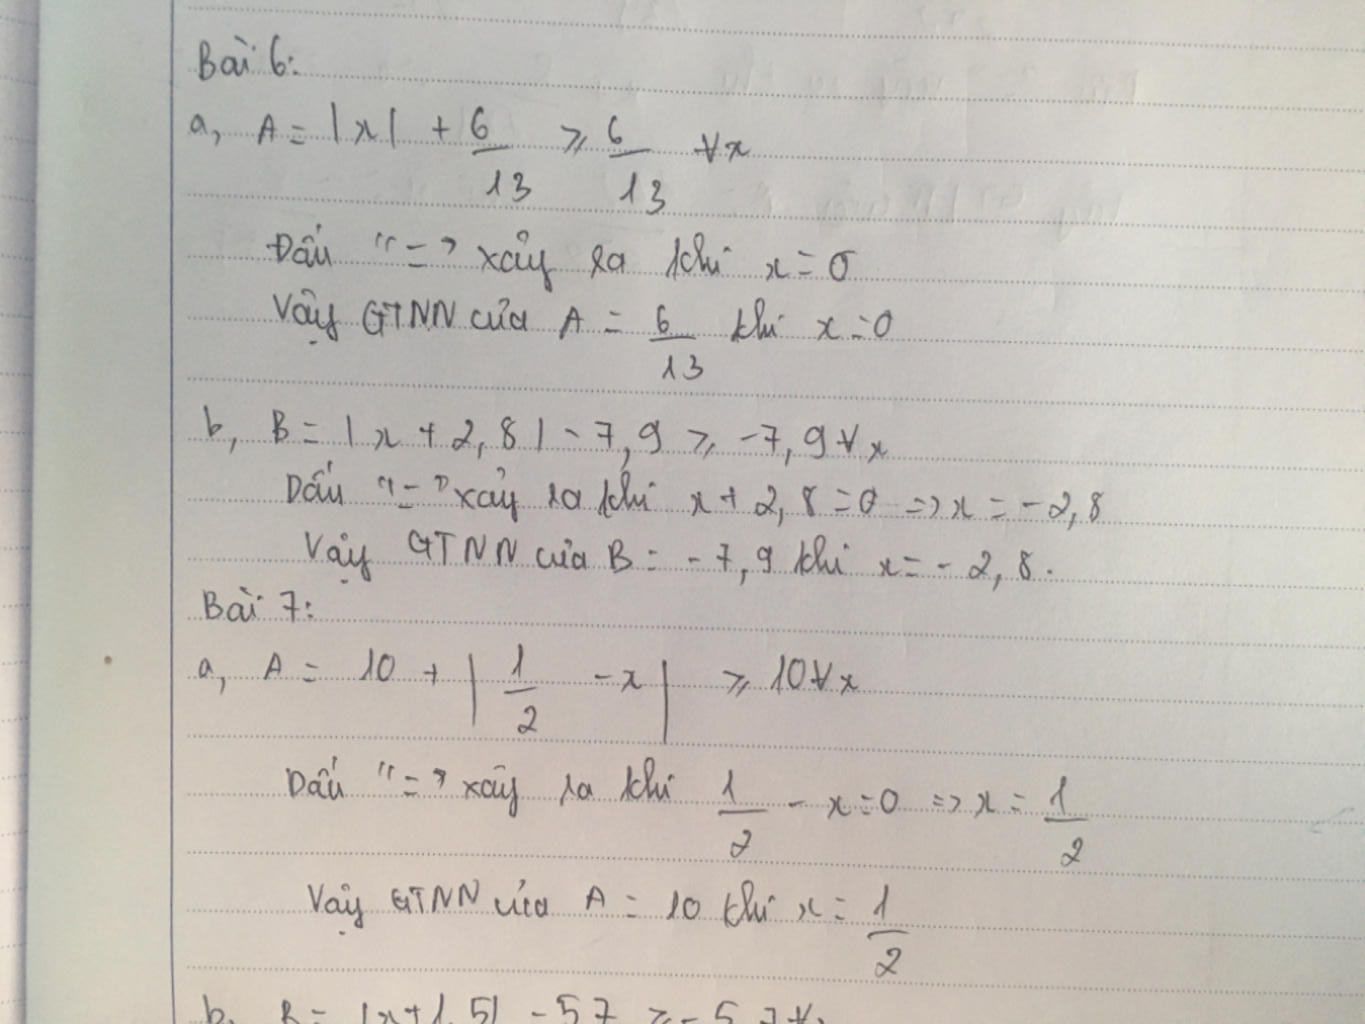 Bài 6:
a, A = |x| + 6/13 ≥ 6/13 ∀x
Dấu "=" xảy ra khi x = 0
Vậy GTNN của A = 6/13 khi x = 0
b, B = |x + 2,8| - 7,9 ≥ -7,9 ∀x
Dấu "=" xảy ra khi x + 2,8 = 0 => x = -2,8
Vậy GTNN của B = -7,9 khi x = -2,8.
Bài 7:
a, A = 10 + |1/2 - x| ≥ 10 ∀x
Dấu "=" xảy ra khi 1/2 - x = 0 => x = 1/2
Vậy GTNN của A = 10 khi x = 1/2
b, B = |x + 1,5| - 5,7 ≥ -5,7 ∀x